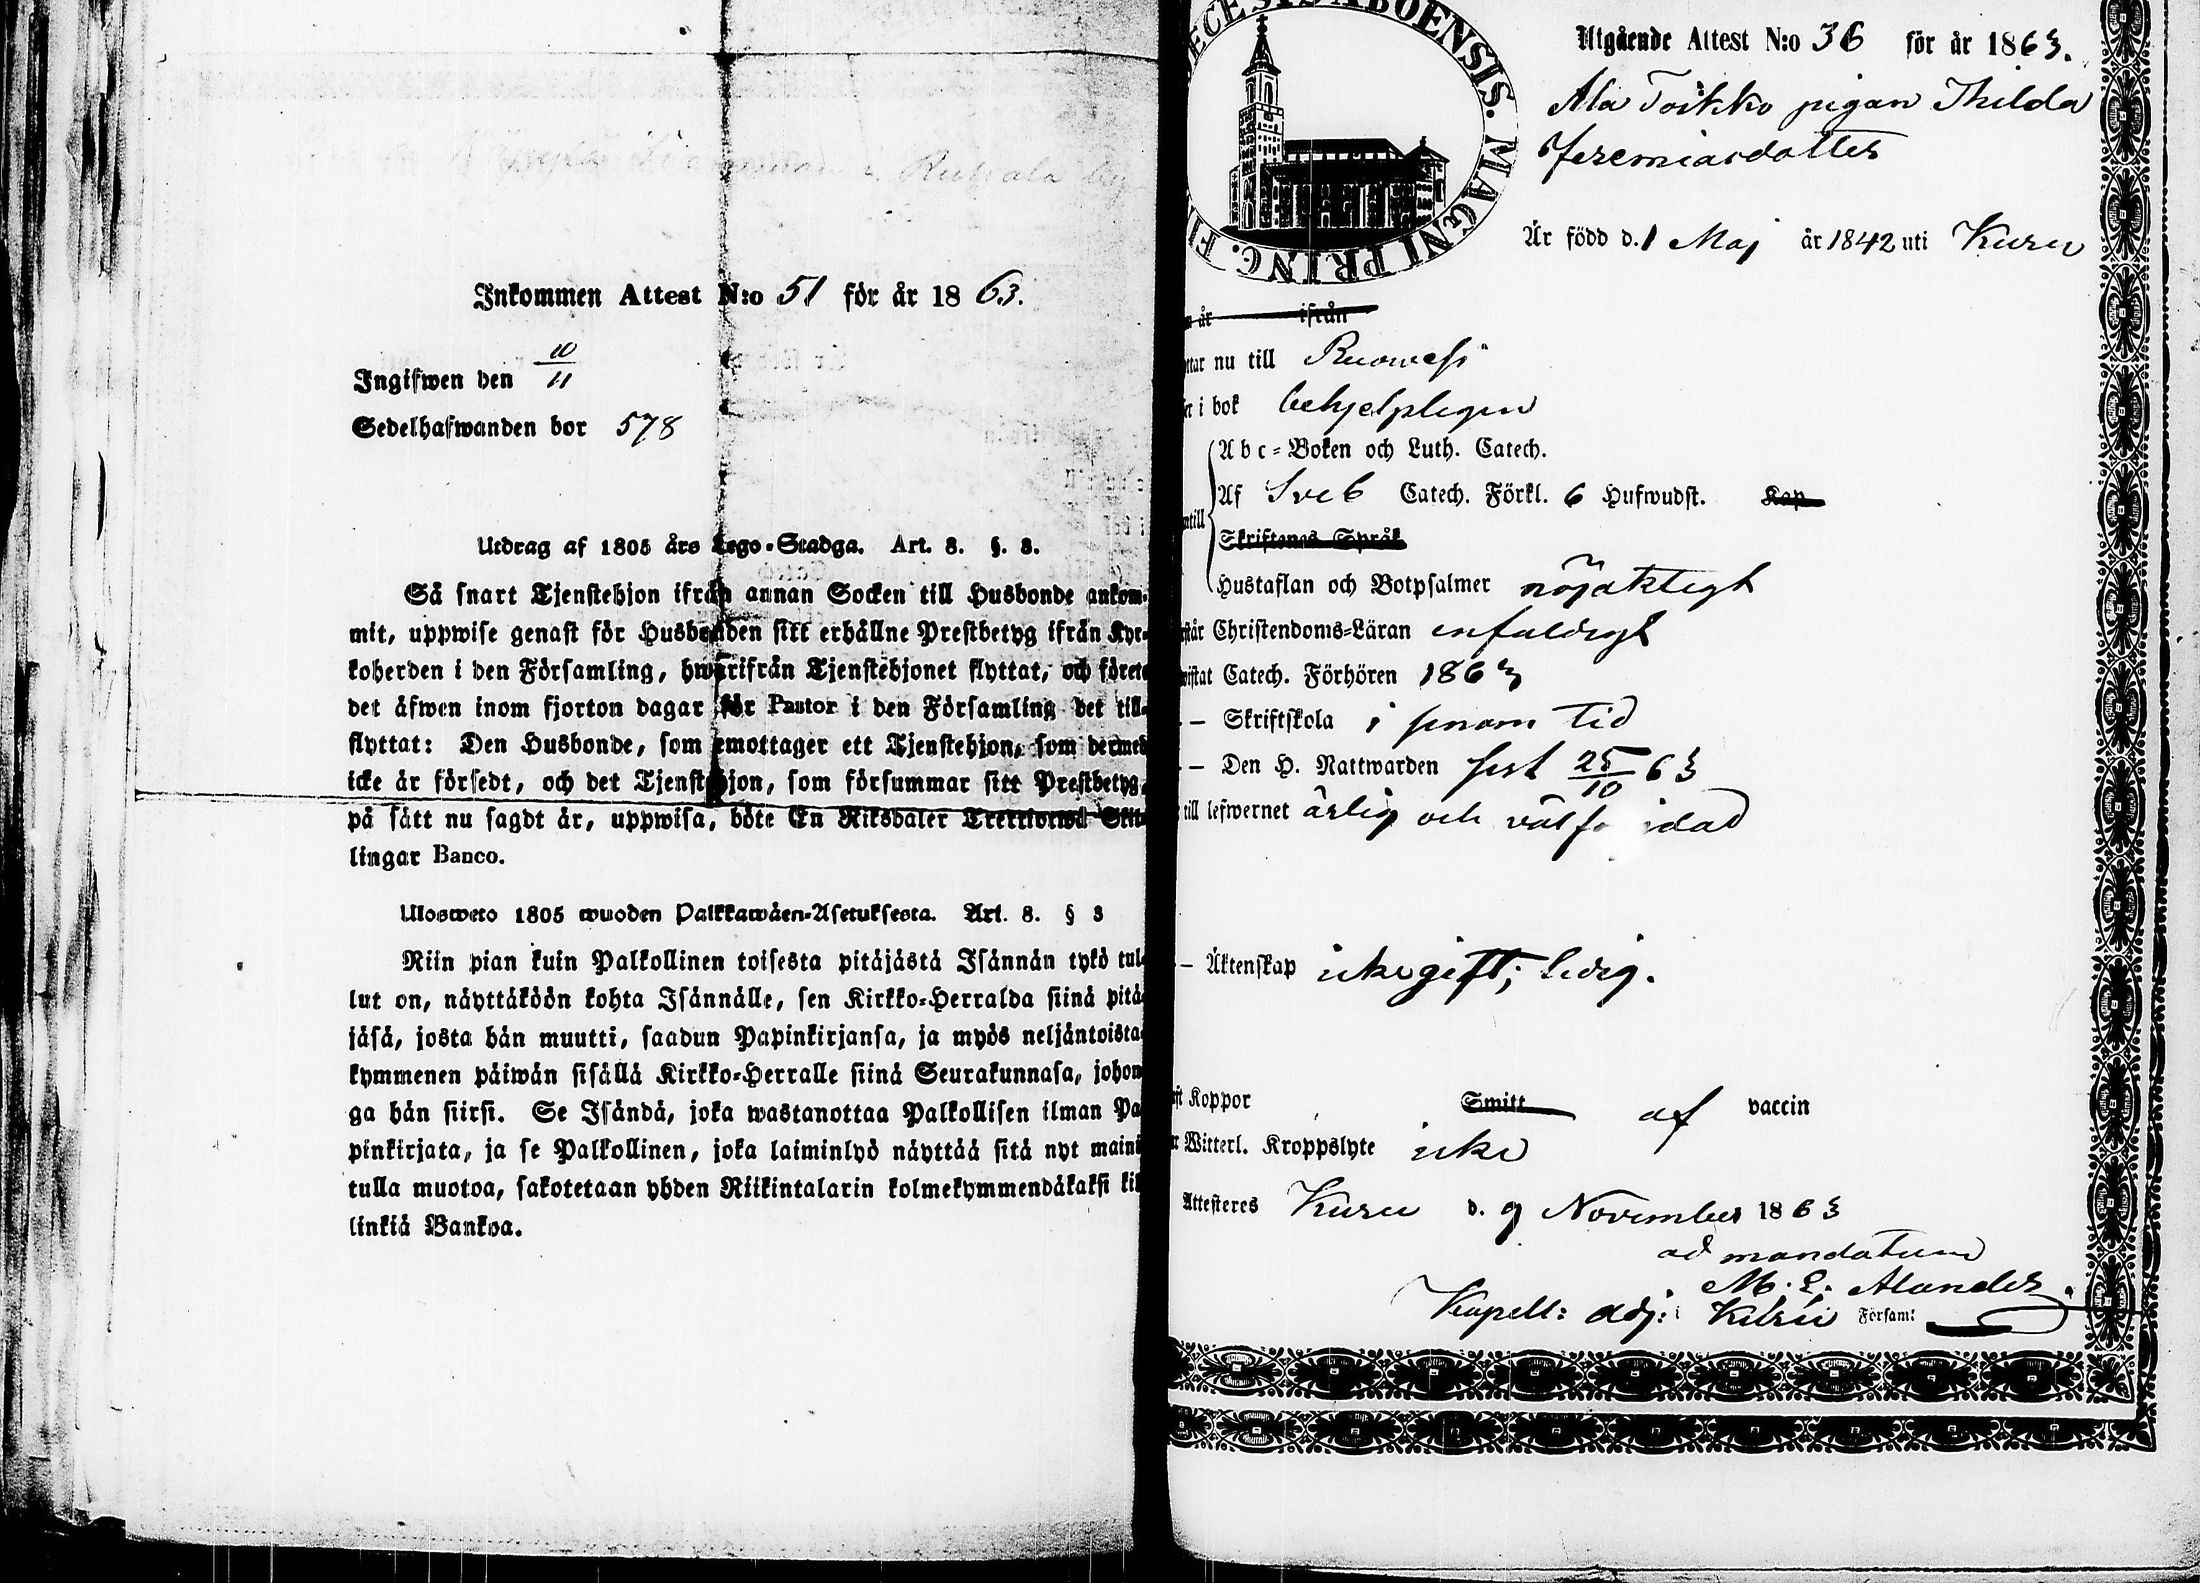 Inkommen Attest N:o 51 för år 18 63.
Ingifwen den 10/11
Sedelhafwanden bor 578
Utdrag af 1805 års Lego-Stadga. Art. 8. §. 3.
Så snart Tjenstehjon ifrån annan Socken till Husbonde ankom-
mit, uppwise genast för Husbonden sitt erhållne Prestbetyg ifrån Kyr-
koherden i den Församling, hwarifrån Tjenstehjonet flyttat, och förete
det äfwen inom fjorton dagar för Pastor i den Församling det till-
flyttat: Den Husbonde, som emottager ett Tjenstehjon, som dermed
icke är försedt, och det Tjenstehjon, som försummar sitt Prestbetyg,
på sätt nu sagdt är, uppwisa, böte En Riksdaler Trettiotwå Skil-
lingar Banco.
Ulosweto 1805 wuoden Palkkawäen-Asetuksesta. Art. 8. § 3
Niin pian kuin Palkollinen toisesta pitäjästä Isännän tykö tul-
lut on, näyttäköön kohta Isännälle, sen Kirkko-Herralda siinä pitä-
jäsä, josta hän muutti, saadun Papinkirjansa, ja myös neljäntoista-
kymmenen päiwän sisällä Kirkko-Herralle siinä Seurakunnasa, johon-
ga hän siirsi. Se Isändä, joka wastanottaa Palkollisen ilman Pa-
pinkirjata, ja se Palkollinen, joka laiminlyö näyttää sitä nyt maini-
tulla muotoa, sakotetaan yhden Riikintalarin kolmekymmendäkaksi kil-
linkiä Bankoa.
ECESIS ABOENSIS. MAGNI PRINC. FI
Utgående Attest N:o 36 för år 1863.
Ala Toikko pigan Thilda
Jeremiasdotter
Är född d. 1 Maj år 1842 uti Kuru
n år ifrån
ttar nu till Ruowesi
er i bok behjelpligen
Abc-Boken och Luth. Catech.
Af Sveb Catech. Förkl. 6 Hufwudst. Kap
ntill
Skriftenes Språk
Hustaflan och Botpsalmer nöjaktigt
står Christendoms-Läran enfaldigt
wistat Catech. Förhören 1863
- - Skriftskola i sinom tid
- - Den H. Nattwarden sist 25/10 63
till lefwernet ärlig och välfrejdad
- - Äktenskap icke gift; ledig.
ft Koppor Smitt af vaccin
r Witterl. Kroppslyte icke
Attesteres Kuru d. 9 November 1863
ad mandatum
M. E. Alander
Kapell: adj: i Kuru Församl: